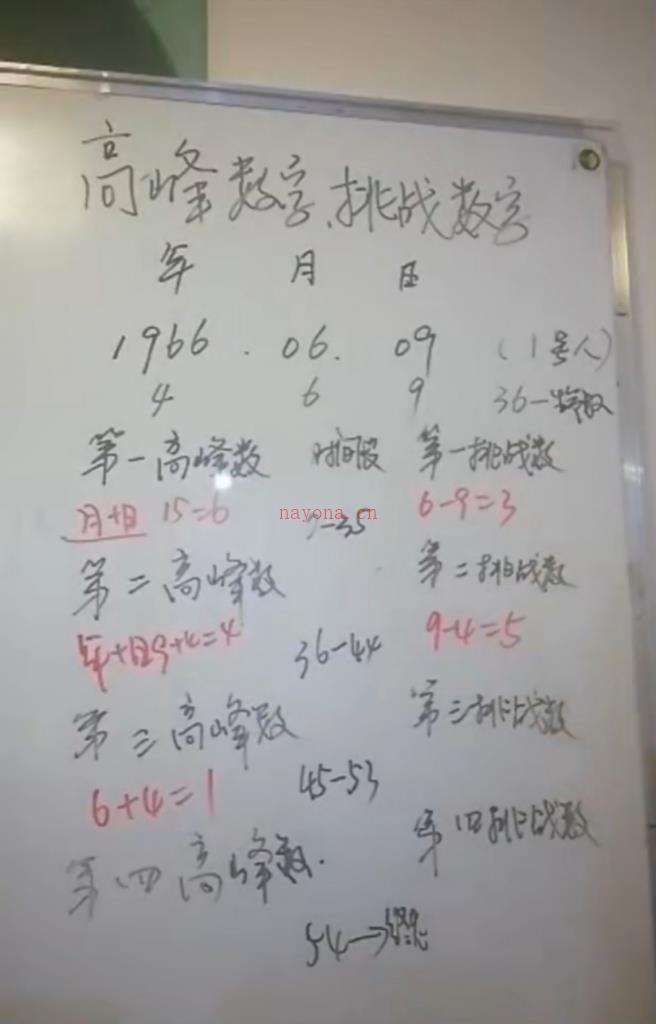 高峰数字、挑战数字
年 月 日
1966 . 06. 09 (1号人)
4 6 9 36-
第一高峰数 时间段 第一挑战数
月+日 15=6 -35 6-9=3
nayona.cn
第二高峰数 第二挑战数
年+日9+4=4 36-44 9-4=5
第三高峰数 第三挑战数
6+4=1 45-53
第四高峰数. 第四挑战数
54→